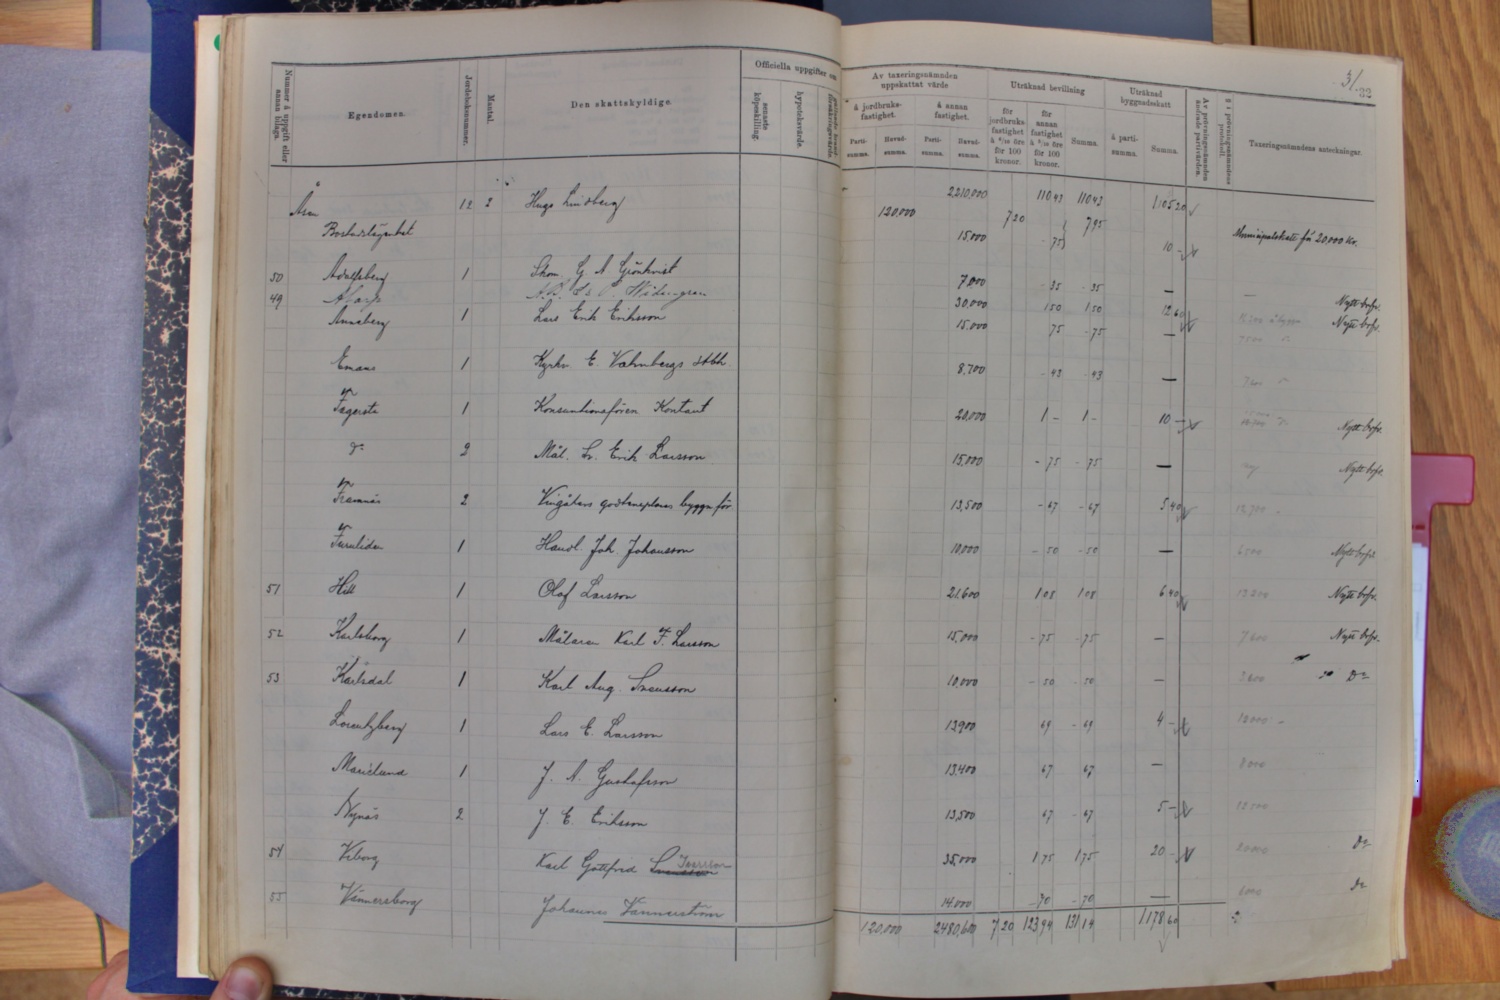 3/32
Nummer å uppgift eller annan bilaga.
Egendomen.
Jordeboksnummer.
Mantal.
Den skattskyldige.
Officiella uppgifter om
senaste köpeskilling.
hypoteksvärde.
Av taxeringsnämnden uppskattat värde
å jordbruksfastighet.
å annan fastighet.
Partisumma.
Huvudsumma.
Partisumma.
Huvudsumma.
Uträknad bevillning
för jordbruksfastighet å 6/10 öre för 100 kronor.
för annan fastighet å 5/10 öre för 100 kronor.
Summa.
Uträknad byggnadsskatt
å partisumma.
Summa.
Av prövningsnämnden ändrade partivärden.
§ i prövningsnämndens protokoll.
Taxeringsnämndens anteckningar.
Åsen 12 2 Hugo Lindberg 2,210,000 110 43 110 43 1,105 20
120,000 7 20 7 95
Bostadslägenhet 15,000 - 75 10 - Municipalskatt för 20,000 Kr.
50 Adolfsberg 1 G A Grönkvist 7,000 - 35 - 35 —
49 30,000 1 50 1 50 12 60 Nytt bofr.
Anneberg 1 Lars Erik Eriksson 15,000 75 - 75 — Nytt bofr.
Emaus 1 Kyrkv. E. Vahnbergs stbh. 8,700 - 43 - 43 —
Fagersta 1 Konsumtionsfören Kontant 20,000 1 - 1 - 10 - Nytt bofr.
do 2 Mål. Lr. Erik Larsson 15,000 - 75 - 75 — Nytt bofr.
Framnäs 2 Vingåkers godtemplares byggn.för 13,500 - 67 - 67 5 40
Furuliden 1 Handl. Joh. Johansson 10,000 - 50 - 50 — 6500 Nytt bofr.
51 Hill 1 Olof Larsson 21,600 1 08 1 08 6 40 Nytt bofr.
52 Karlsborg 1 Målaren Karl F. Larsson 15,000 - 75 - 75 — Nytt bofr.
53 Karlsdal 1 Karl Aug. Svensson 10,000 - 50 - 50 — Do
Lorentzberg 1 Lars E. Larsson 13,900 69 - 69 4 -
Marielund 1 J. A. Gustafsson 13,400 67 67 — 8000
Nynäs 2 J. E. Eriksson 13,500 67 - 67 5 -
54 Viborg Karl Gottfrid Svensson Ivarsson 35,000 1 75 1 75 20 - 20000 Do
55 Vännersborg Johannes Vännerström 14,000 - 70 - 70 — Do
120,000 2,480,600 7 20 123 94 131 14 1178 60